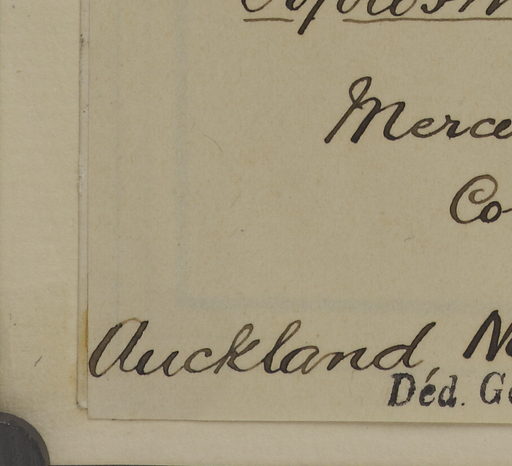 Merce
Co-
Auckland, N
Déd. G